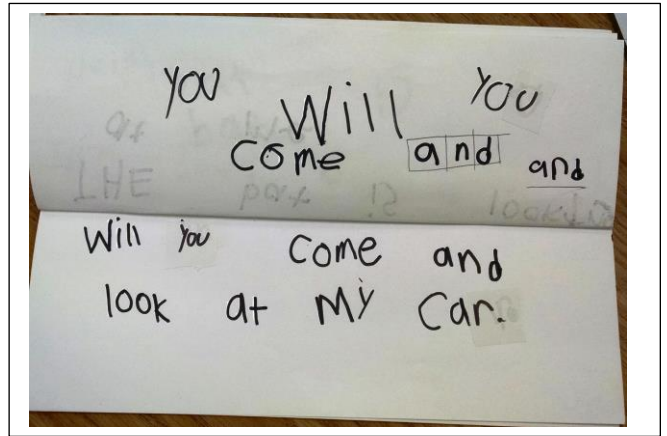 you Will You
Come and and
Will you Come and
look at My Car.